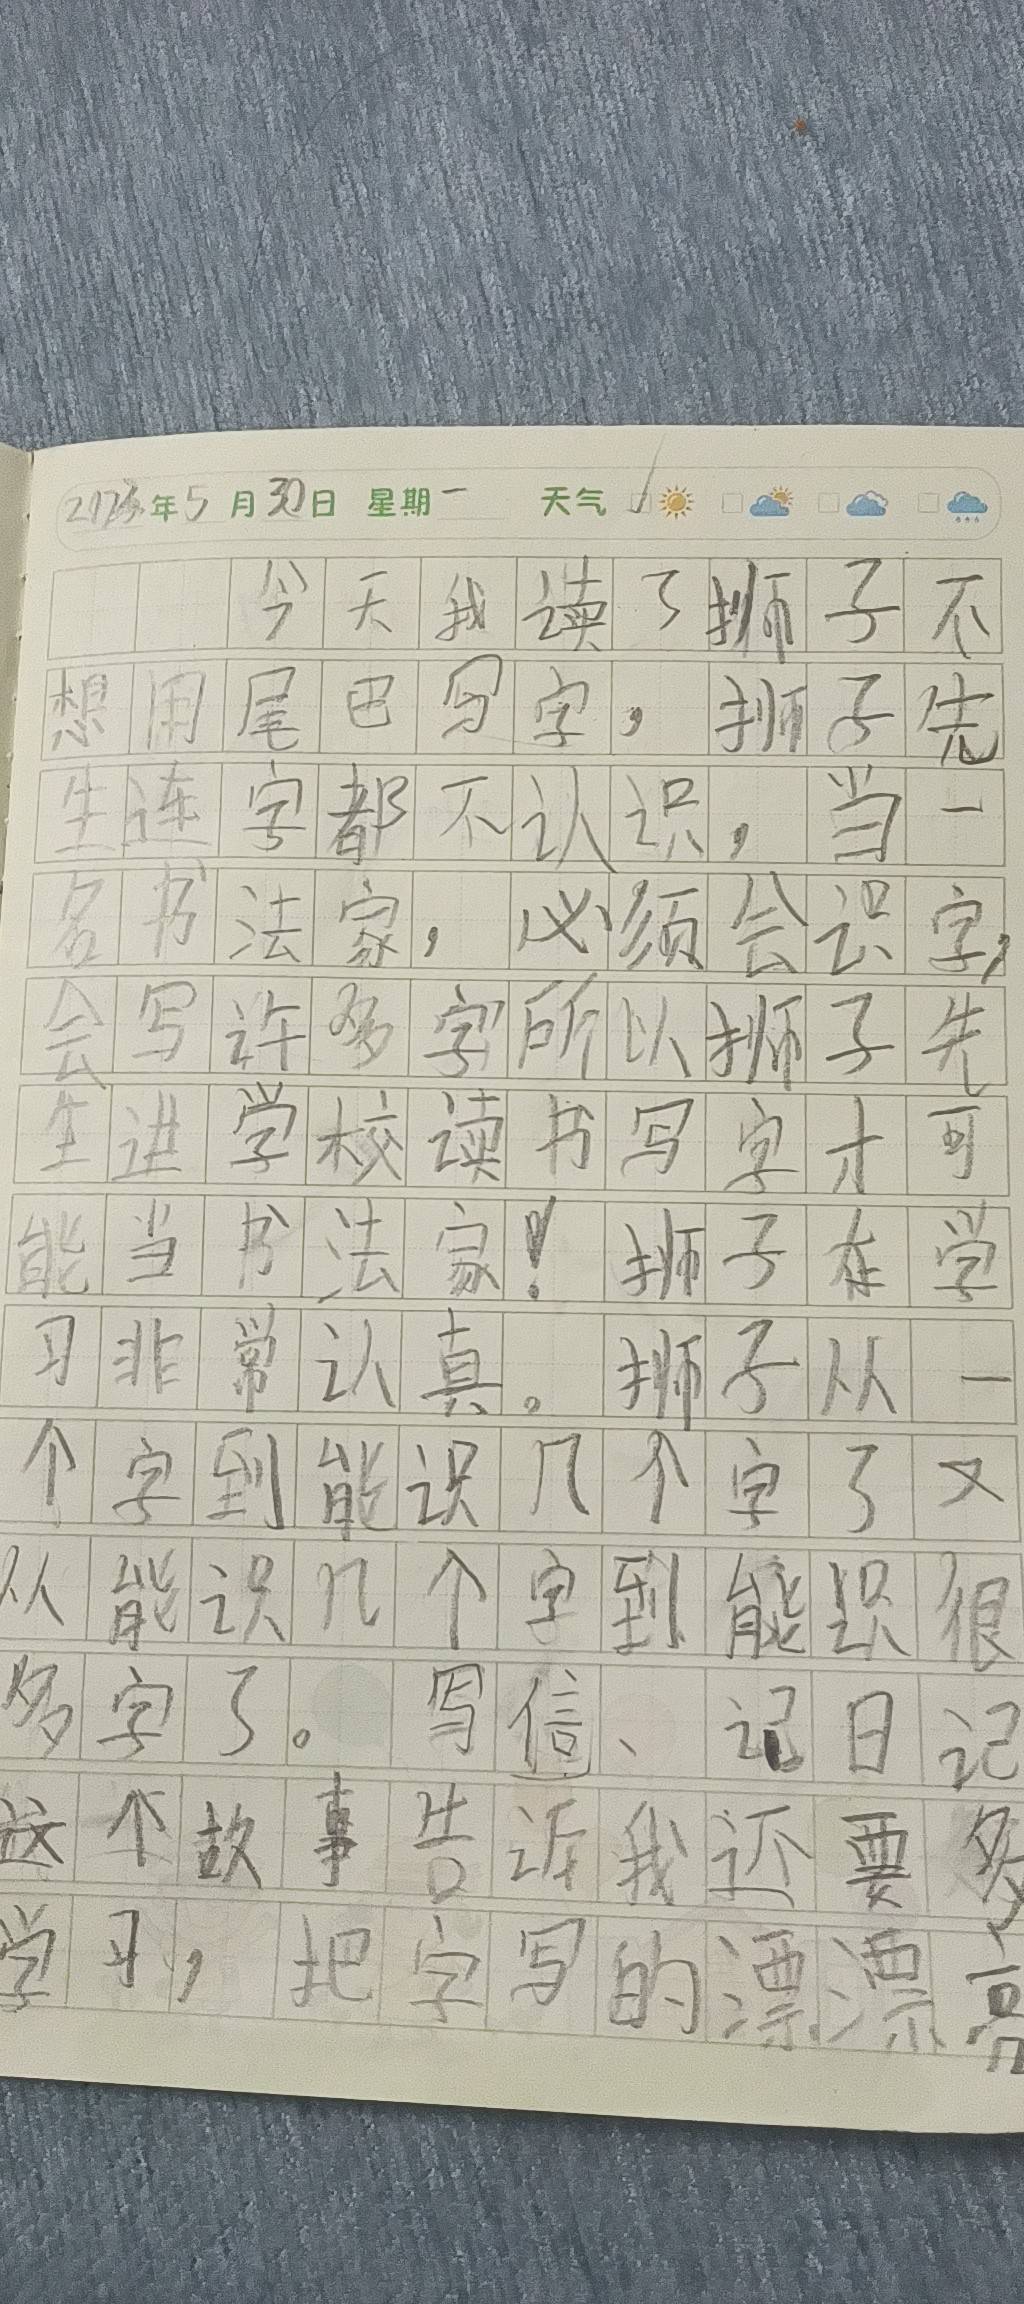 年5月30日 星期一 天气
今天我读了狮子不
想用尾巴写字，狮子先
生连字都不认识，当一
名书法家，必须会识字，
会写许多字所以狮子先
生进学校读书写字才可
能当书法家！狮子在学
习非常认真。狮子从一
个字到能识几个字了又
从能识几个字到能识很
多字了。写信、记日记
这个故事告诉我还要多
学习，把字写的漂漂亮